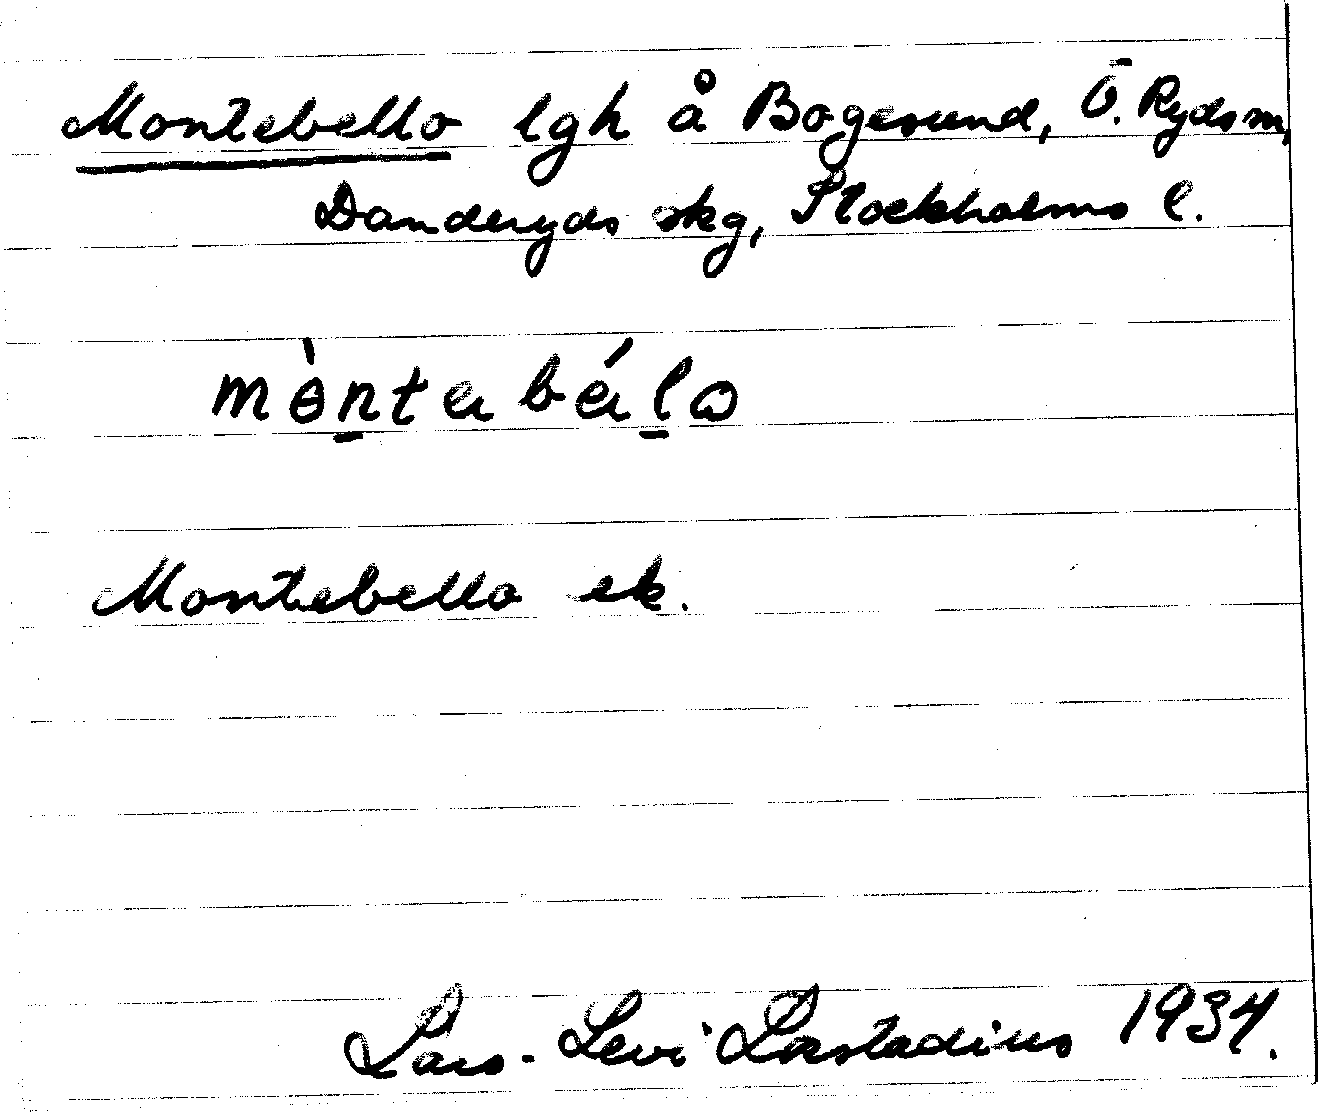 Montebello lgh å Bogesund, Ö. Ryds sn,
Danderyds skg, Stockholms l.
mòntabélω
Montebello ek.
Lars-Levi Læstadius 1934.